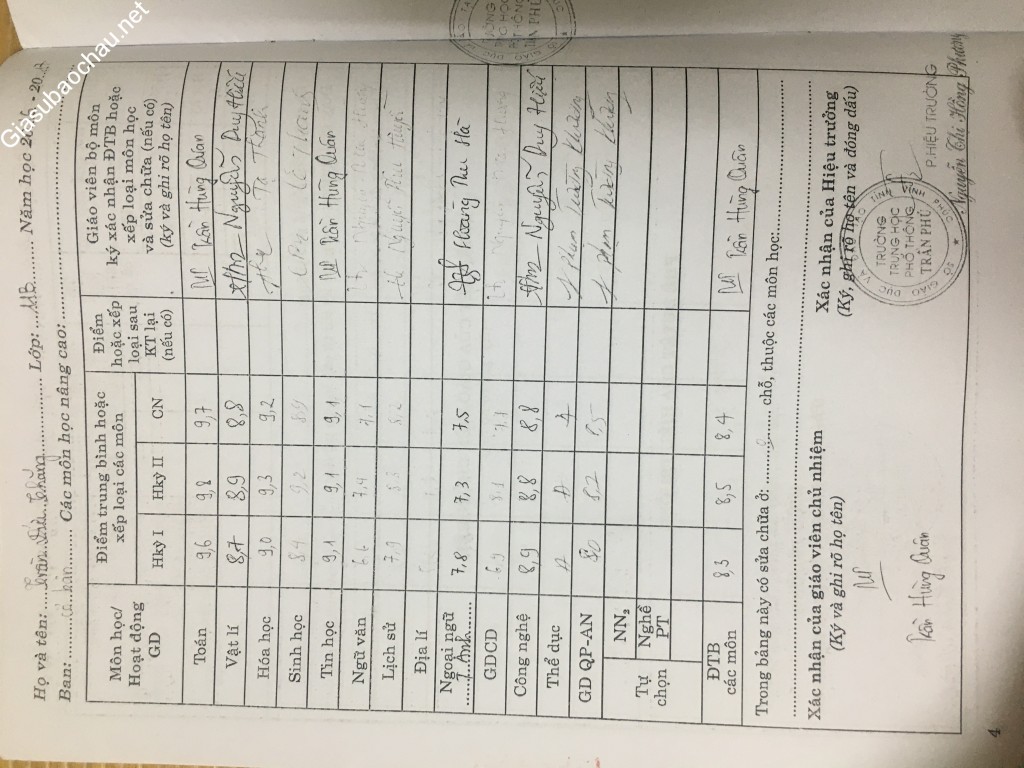 Giasubaochau.net
Họ và tên: Trần Lớp: 11B Năm học 20 - 20
Ban: Các môn học nâng cao:
Môn học/ Hoạt động GD
Điểm trung bình hoặc xếp loại các môn
Hkỳ I Hkỳ II CN
Điểm hoặc xếp loại sau KT lại (nếu có)
Giáo viên bộ môn ký xác nhận ĐTB hoặc xếp loại môn học và sửa chữa (nếu có) (ký và ghi rõ họ tên)
Toán 9,6 9,8 9,7 Trần Hùng Quân
Vật lí 8,7 8,9 8,8 Nguyễn Duy Hiếu
Hóa học 9,0 9,3 9,2 Tạ
Sinh học 8,4 9,2 8,9 Lê
Tin học 9,1 9,1 9,1 Trần Hùng Quân
Ngữ văn 6,6 7,4 7,1
Lịch sử 7,9 8,3 8,2 Nguyễn
Địa lí
Ngoại ngữ T.Anh 7,8 7,3 7,5 Hoàng Thu Hà
GDCD 6,9 8,1 7,7
Công nghệ 8,9 8,8 8,8 Nguyễn Duy Hiếu
Thể dục Đ Đ Đ Phan
GD QP-AN 8,2 Phạm
Tự chọn
NN2
Nghề PT
ĐTB các môn 8,3 8,5 8,4 Trần Hùng Quân
Trong bảng này có sửa chữa ở: chỗ, thuộc các môn học:
Xác nhận của giáo viên chủ nhiệm
(Ký và ghi rõ họ tên)
Trần Hùng Quân
Xác nhận của Hiệu trưởng
(Ký, ghi rõ họ tên và đóng dấu)
P.HIỆU TRƯỞNG
TRƯỜNG
TRUNG HỌC
PHỔ THÔNG
TRẦN PHÚ
Nguyễn Thị Hồng Phương
4